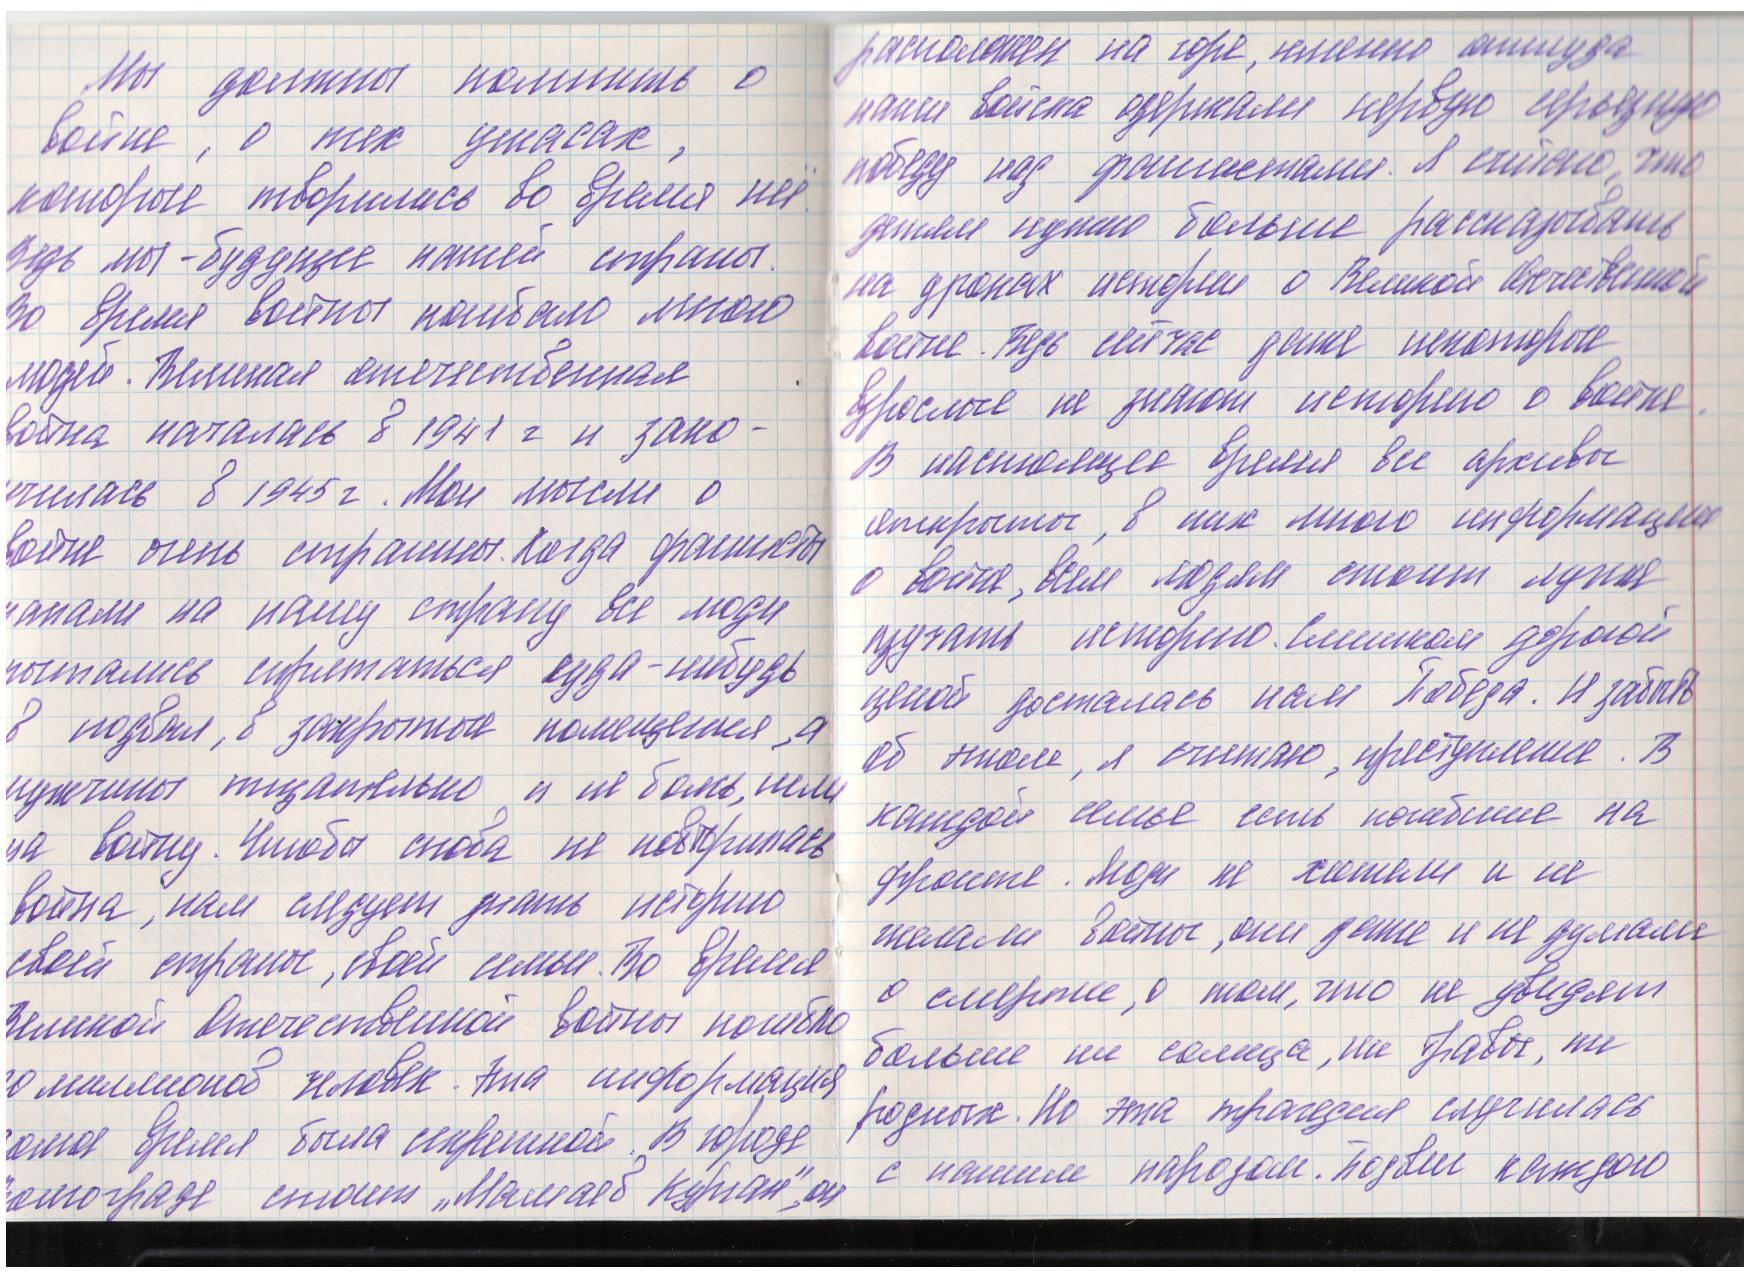 Мы должны помнить о
войне, о тех ужасах,
которые творились во время неё.
Ведь мы - будущее нашей страны.
Во время войны погибало много
людей. Великая отечественная
война началась в 1941 г и зако-
нчилась в 1945 г. Мои мысли о
войне очень страшны. Когда фашисты
напали на нашу страну все люди
пытались спрятаться куда-нибудь
в подвал, в закрытые помещения, а
мужчины тщательно и не боясь, шли
на войну. Чтобы снова не повторилась
война, нам следует знать историю
своей страны, своей семьи. Во время
Великой Отечественной войны погибло
миллионов человек. Эта информация
долгое время была секретной. В городе
Волгограде стоит „Мамаев Курган", он
расположен на горе, именно оттуда
наши войска одержали первую серьезную
победу над фашистами. Я считаю, что
детям нужно больше рассказывать
на уроках истории о Великой Отечественной
войне. Ведь сейчас даже некоторые
взрослые не знают историю о войне.
В настоящее время все архивы
открыты, в них много информации
о войне, всем людям стоит лучше
изучать историю. Слишком дорогой
ценой досталась нам Победа. И забыть
об этом, я считаю, преступление. В
каждой семье есть погибшие на
фронте. Люди не хотели и не
желали войны, они даже и не думали
о смерти, о том, что не увидят
больше ни солнца, ни травы, ни
родных. Но эта трагедия случилась
с нашим народом. Подвиг каждого